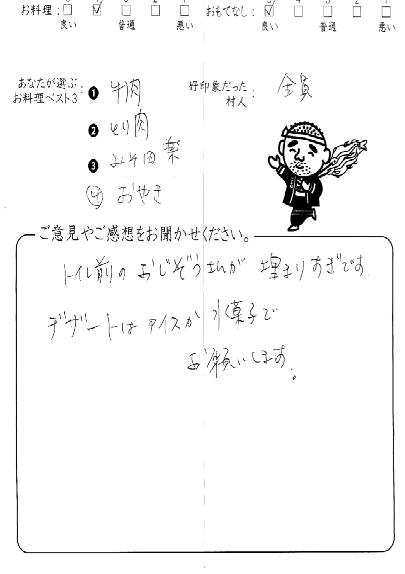 お料理: 5 4 3 2 1 おもてなし: 5 4 3 2 1
良い 普通 悪い 良い 普通 悪い
あなたが選ぶ
お料理ベスト3:
❶ 牛肉
❷ 鶏肉
❸
④ おやき
好印象だった
村人:
全員
ご意見やご感想をお聞かせください。
トイレ前のおじぞうさんが 埋まりすぎです。
デザートはアイスか 水菓子で
お願いします。